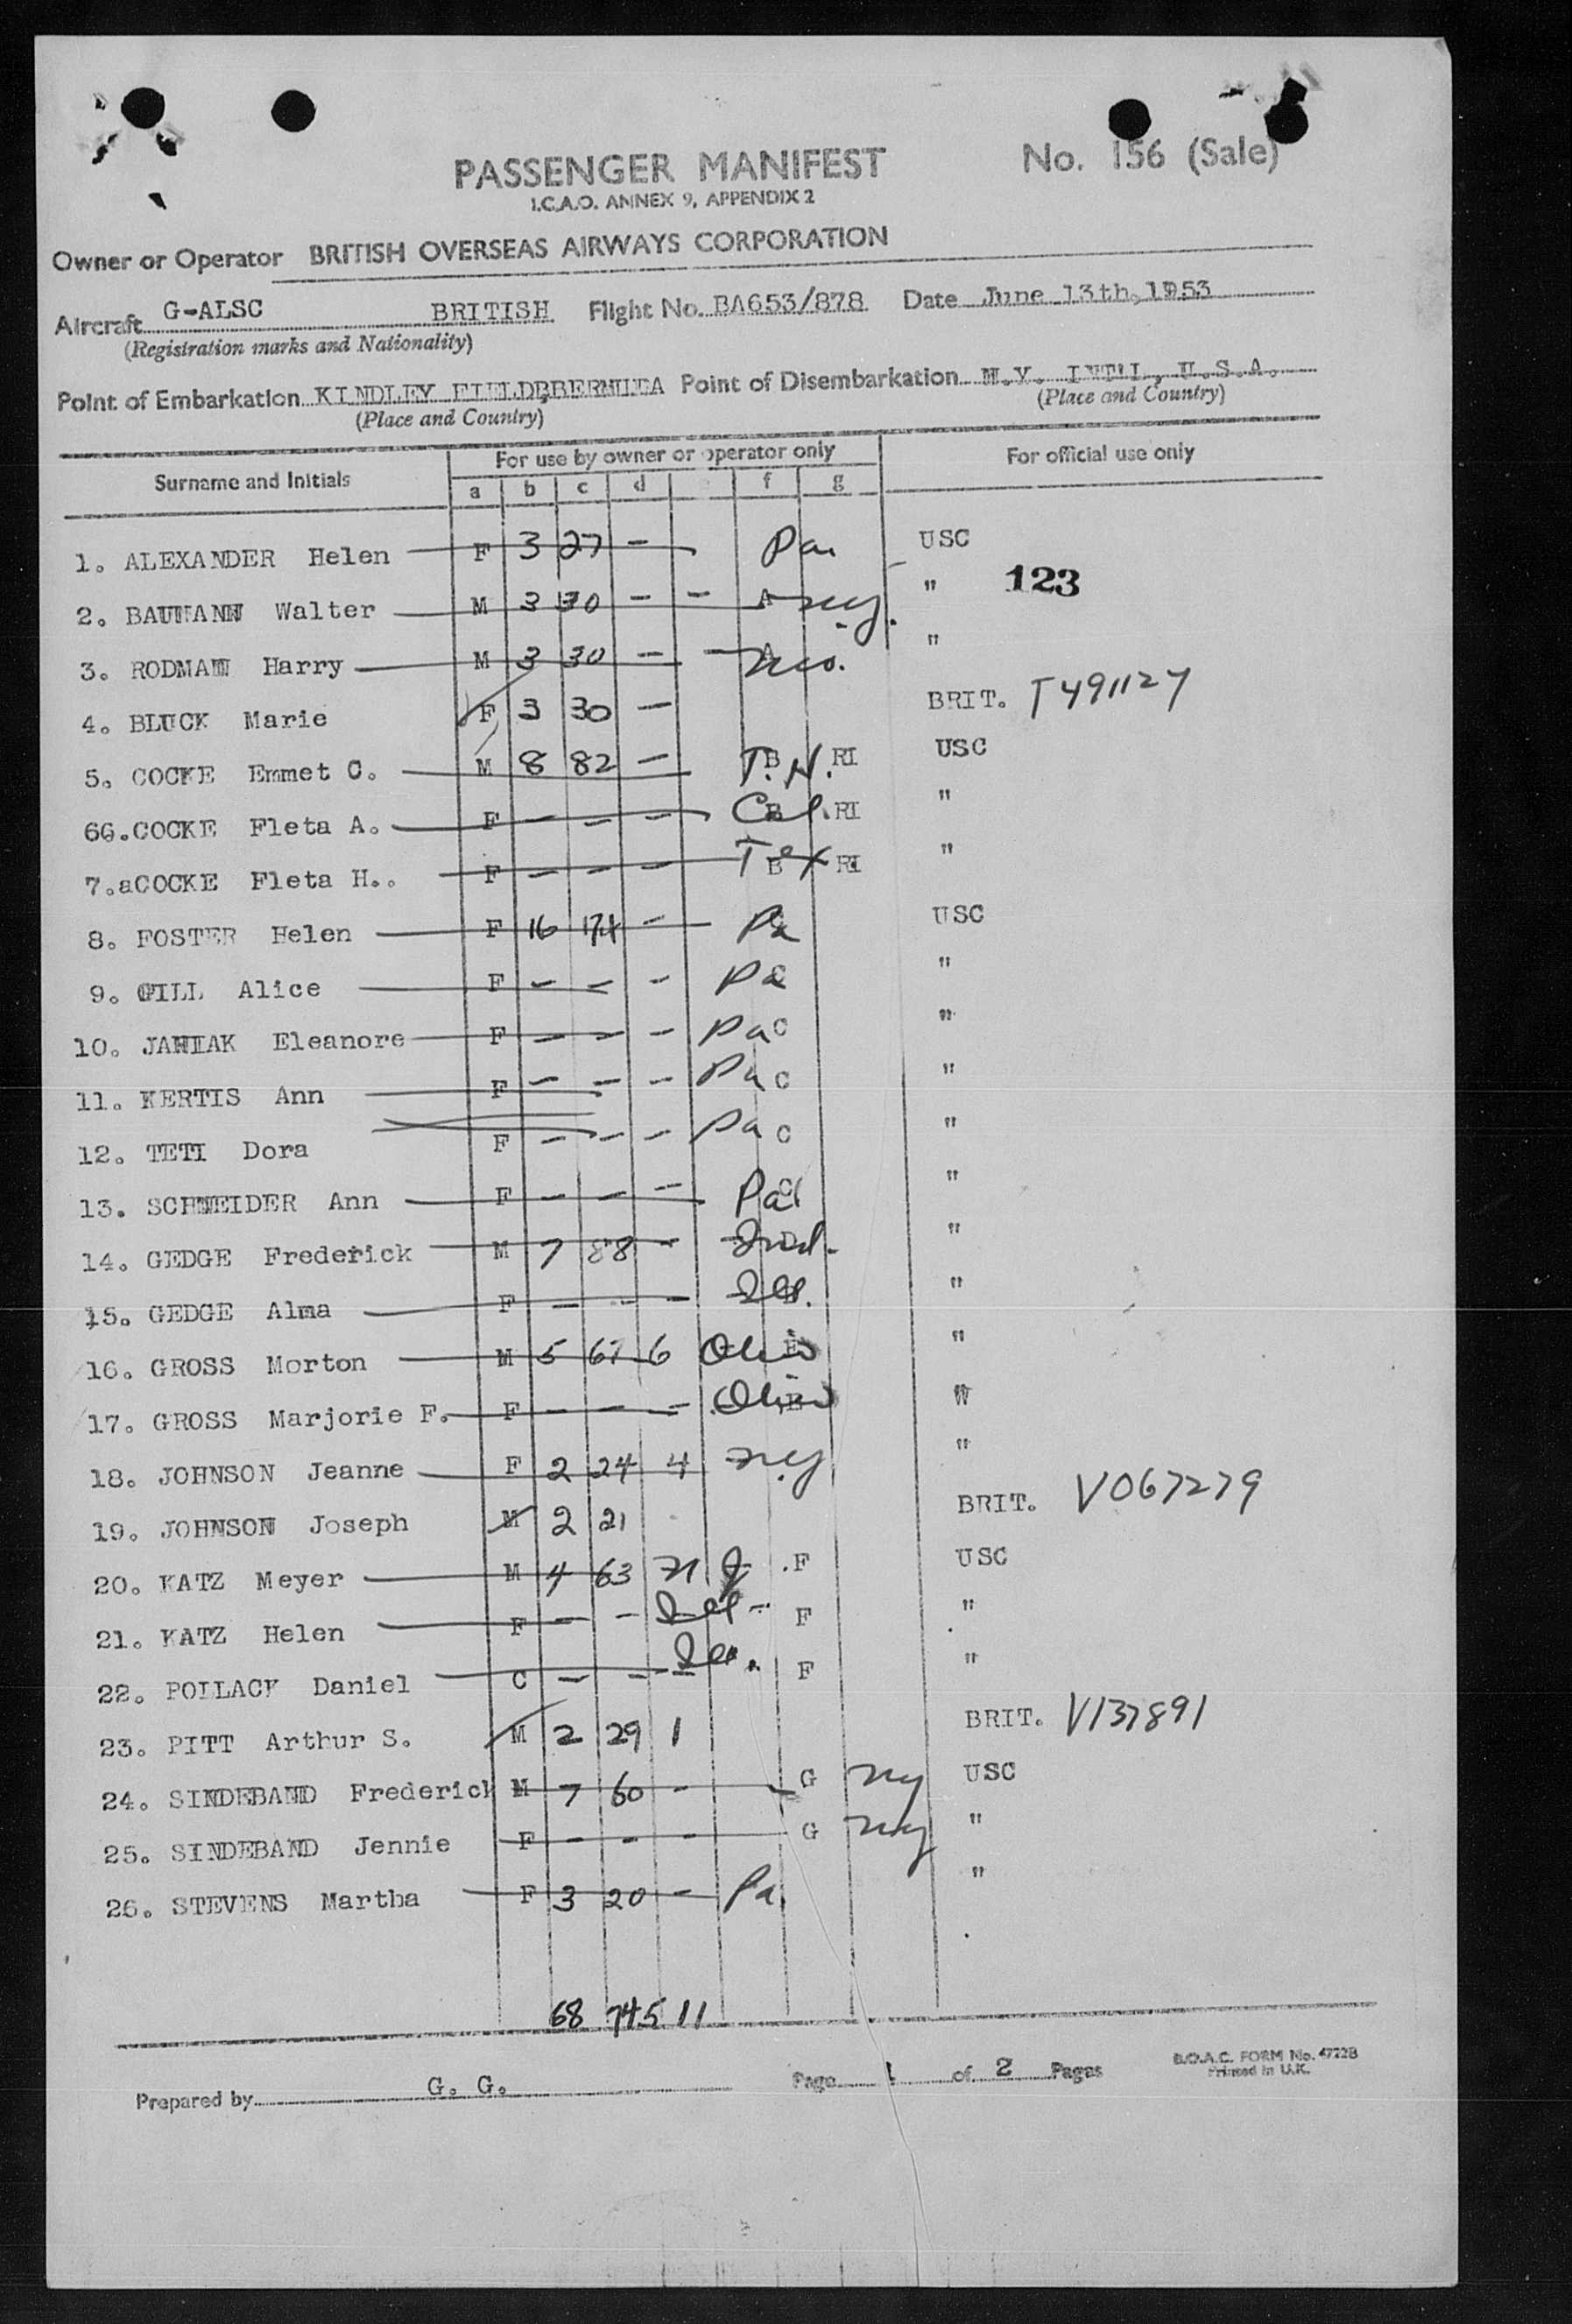 PASSENGER MANIFEST No. 156 (Sale)
I.C.A.O. ANNEX 9, APPENDIX 2
Owner or Operator BRITISH OVERSEAS AIRWAYS CORPORATION
Aircraft G-ALSC BRITISH Flight No. BA653/878 Date June 13th, 1953
(Registration marks and Nationality)
Point of Embarkation KINDLEY FIELD, BERMUDA Point of Disembarkation N.Y. INTL, U.S.A.
(Place and Country) (Place and Country)
Surname and Initials For use by owner or operator only For official use only
a b c d f g
1. ALEXANDER Helen F 3 27 - Pa. USC
2. BAUMANN Walter M 3 30 - - A N.Y. " 123
3. RODMAN Harry M 3 30 - A "
4. BLUCK Marie F 3 30 - BRIT. T491127
5. COCKE Emmet C. M 8 82 - B RI USC
66. COCKE Fleta A. F - - - B Cal. RI "
7.aCOCKE Fleta H.. F - - - B Tex RI "
8. FOSTER Helen F 16 174 - Pa C USC
9. GILL Alice F - - - Pa C "
10. JANIAK Eleanore F - - - Pa C "
11. KERTIS Ann F - - - Pa C "
12. TETI Dora F - - - Pa C "
13. SCHNEIDER Ann F - - - Pa C "
14. GEDGE Frederick M 7 88 - "
15. GEDGE Alma F - - - Ill. "
16. GROSS Morton M 5 67 6 Ohio E "
17. GROSS Marjorie F. F - - - Ohio E "
18. JOHNSON Jeanne F 2 24 4 N.Y "
19. JOHNSON Joseph M 2 21 BRIT. V067279
20. KATZ Meyer M 4 63 N J F USC
21. KATZ Helen F - - F "
22. POLLACK Daniel C - - - Ill. F "
23. PITT Arthur S. M 2 29 1 BRIT. V137891
24. SINDEBAND Frederick M 7 60 - G NY USC
25. SINDEBAND Jennie F - - - G NY "
26. STEVENS Martha F 3 20 - Pa. "
68 745 11
Prepared by G. G. Page 1 of 2 Pages
B.O.A.C. FORM No. 4722B
Printed in U.K.